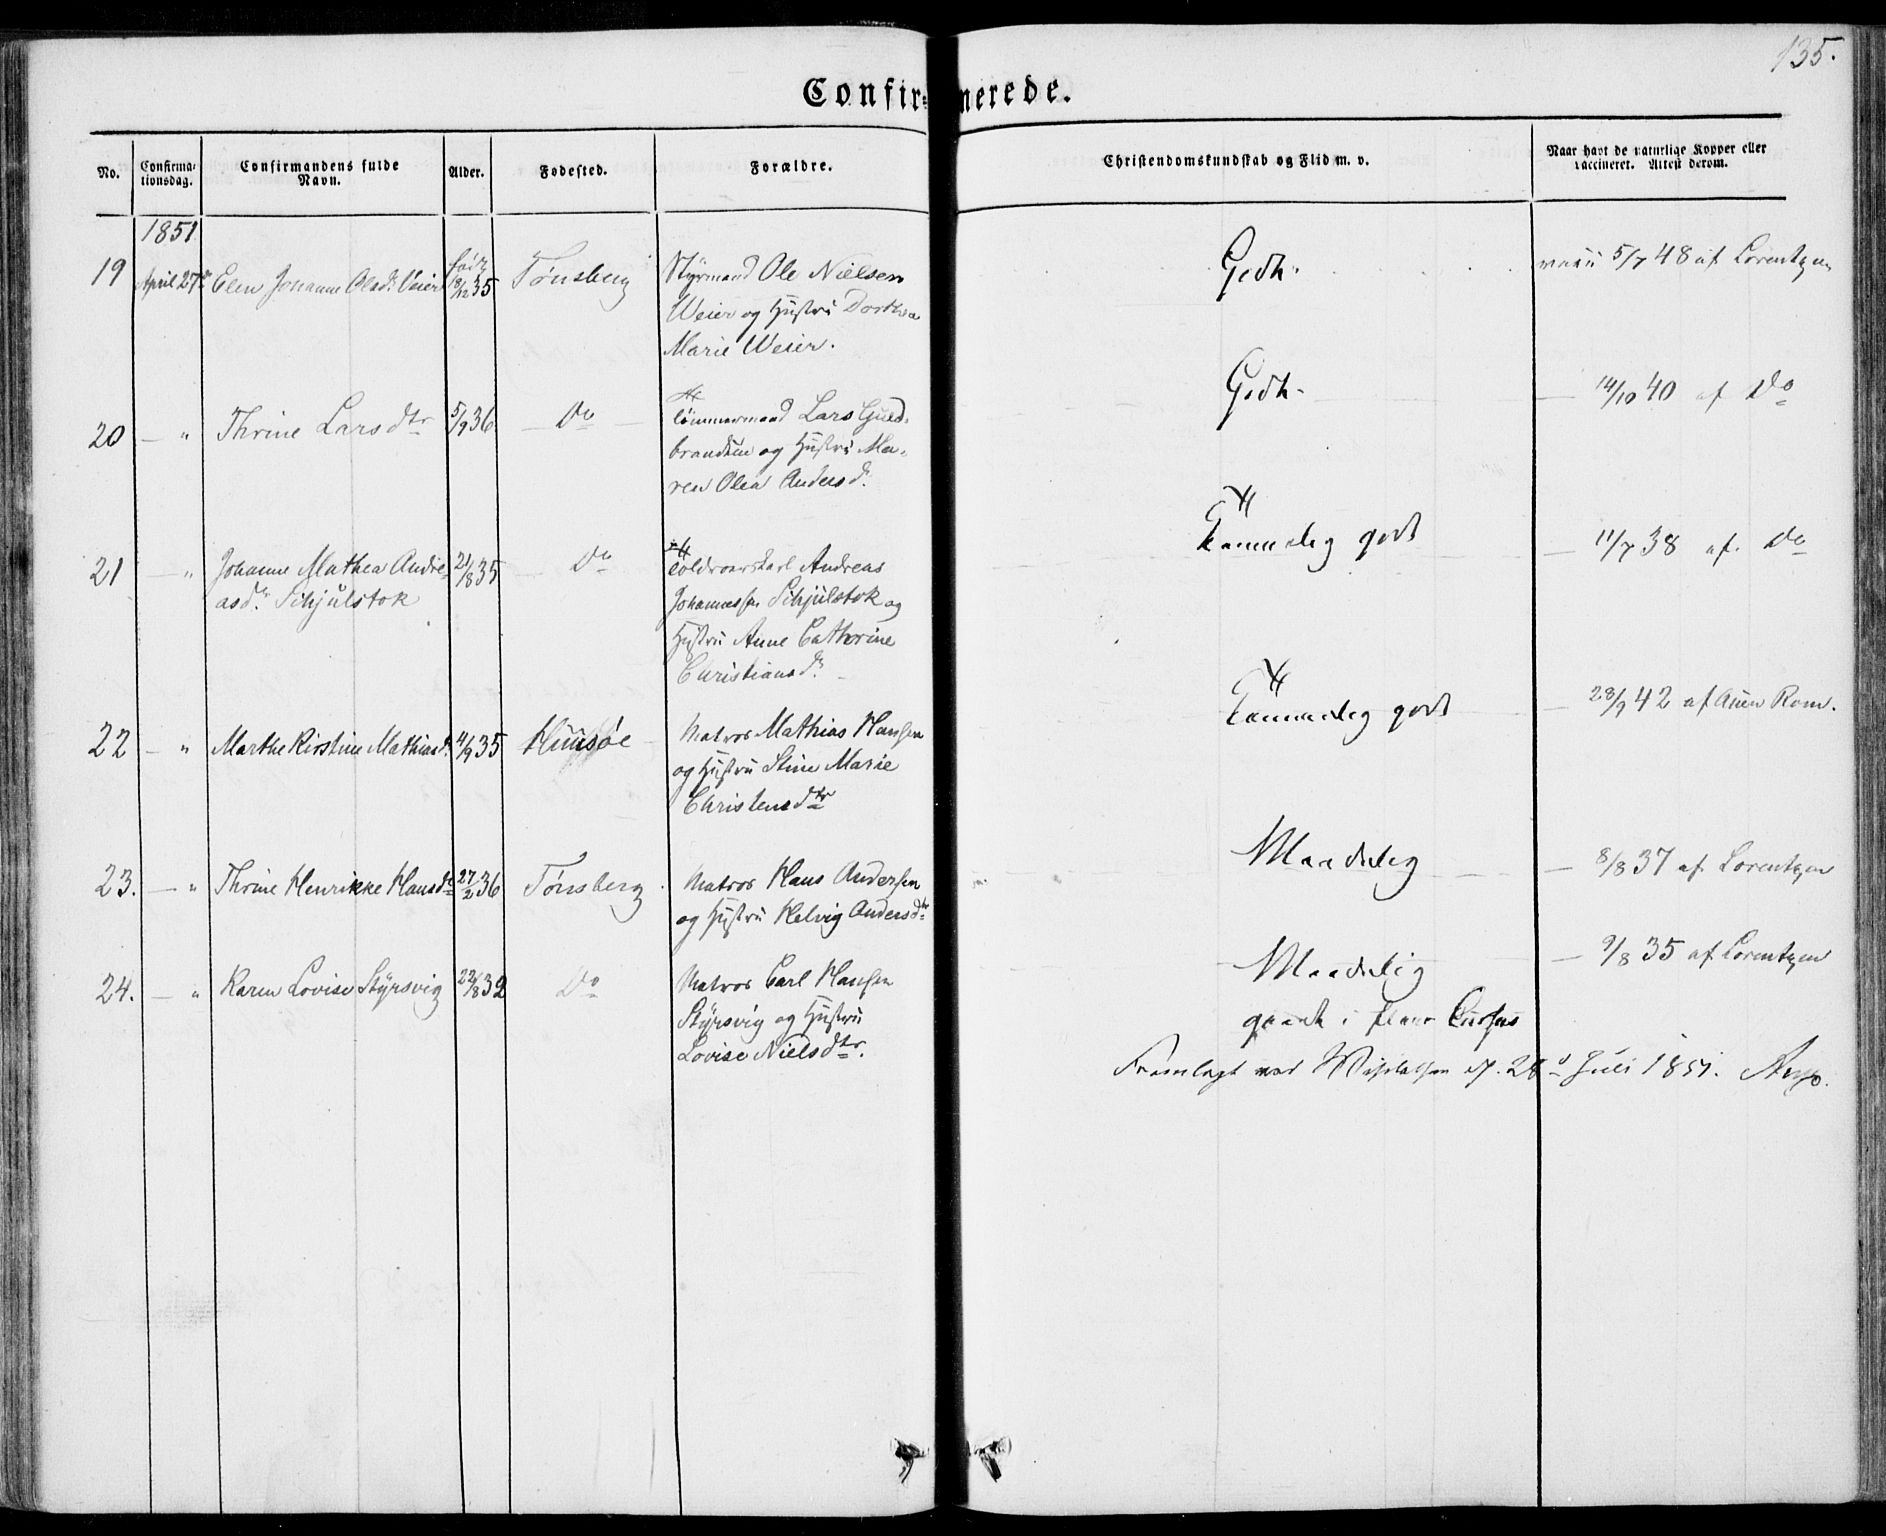 135.
Confirmerede.
No.
Confirma-
tionsdag.
Confirmandens fulde
Navn.
Alder.
Fodested.
Forældre.
Christendomskundskab og Flid m. v.
Naar havt de naturlige Kopper eller
vaccineret. Attest derom.
1851
19 April 27de Elen Johanne Olsdr Veier født 18/12 35 Tønsberg Styrmand Ole Nielsen Godt. vacc. 5/7 48 af Lorentzen
Weier og Hustru Dorthea
Marie Weier.
20 — " Thrine Larsdtr 5/9 36 Do Tømmermand Lars Guld- Godt. — 14/10 40 af Do
brandsen og Hustru Ma-
ren Olea Andersdr.
21 " Johanne Mathea Andre- 21/8 35 Do Toldroerskarl Andreas Temmelig godt — 11/7 38 af Do
asdr. Schjulstok
Johannessen Schjulstok og
Hustru Anne Cathrine
Christiansdr.
22 — " Marthe Kirstine Mathiasd. 4/9 35 Huusøe Matros Mathias Hansen Temmelig godt — 28/9 42 af Rom.
og Hustru Stine Marie
Christensdtr
23. — " Thrine Henrikke Hansdtr 27/2 36 Tønsberg Matros Hans Andersen Maadelig — 8/8 37 af Lorentzen
og Hustru Helvig Andersdtr
24. — " Karen Lovise Styrsvig 22/8 32 Do Matros Carl Hansen Maadelig — 9/8 35 af Lorentzen
Styrsvig og Hustru
Lovise Nielsdtr.
gaaet i flere Cursus
Fremlagt ved Visitatsen d. 28de Juli 1851. Arup.